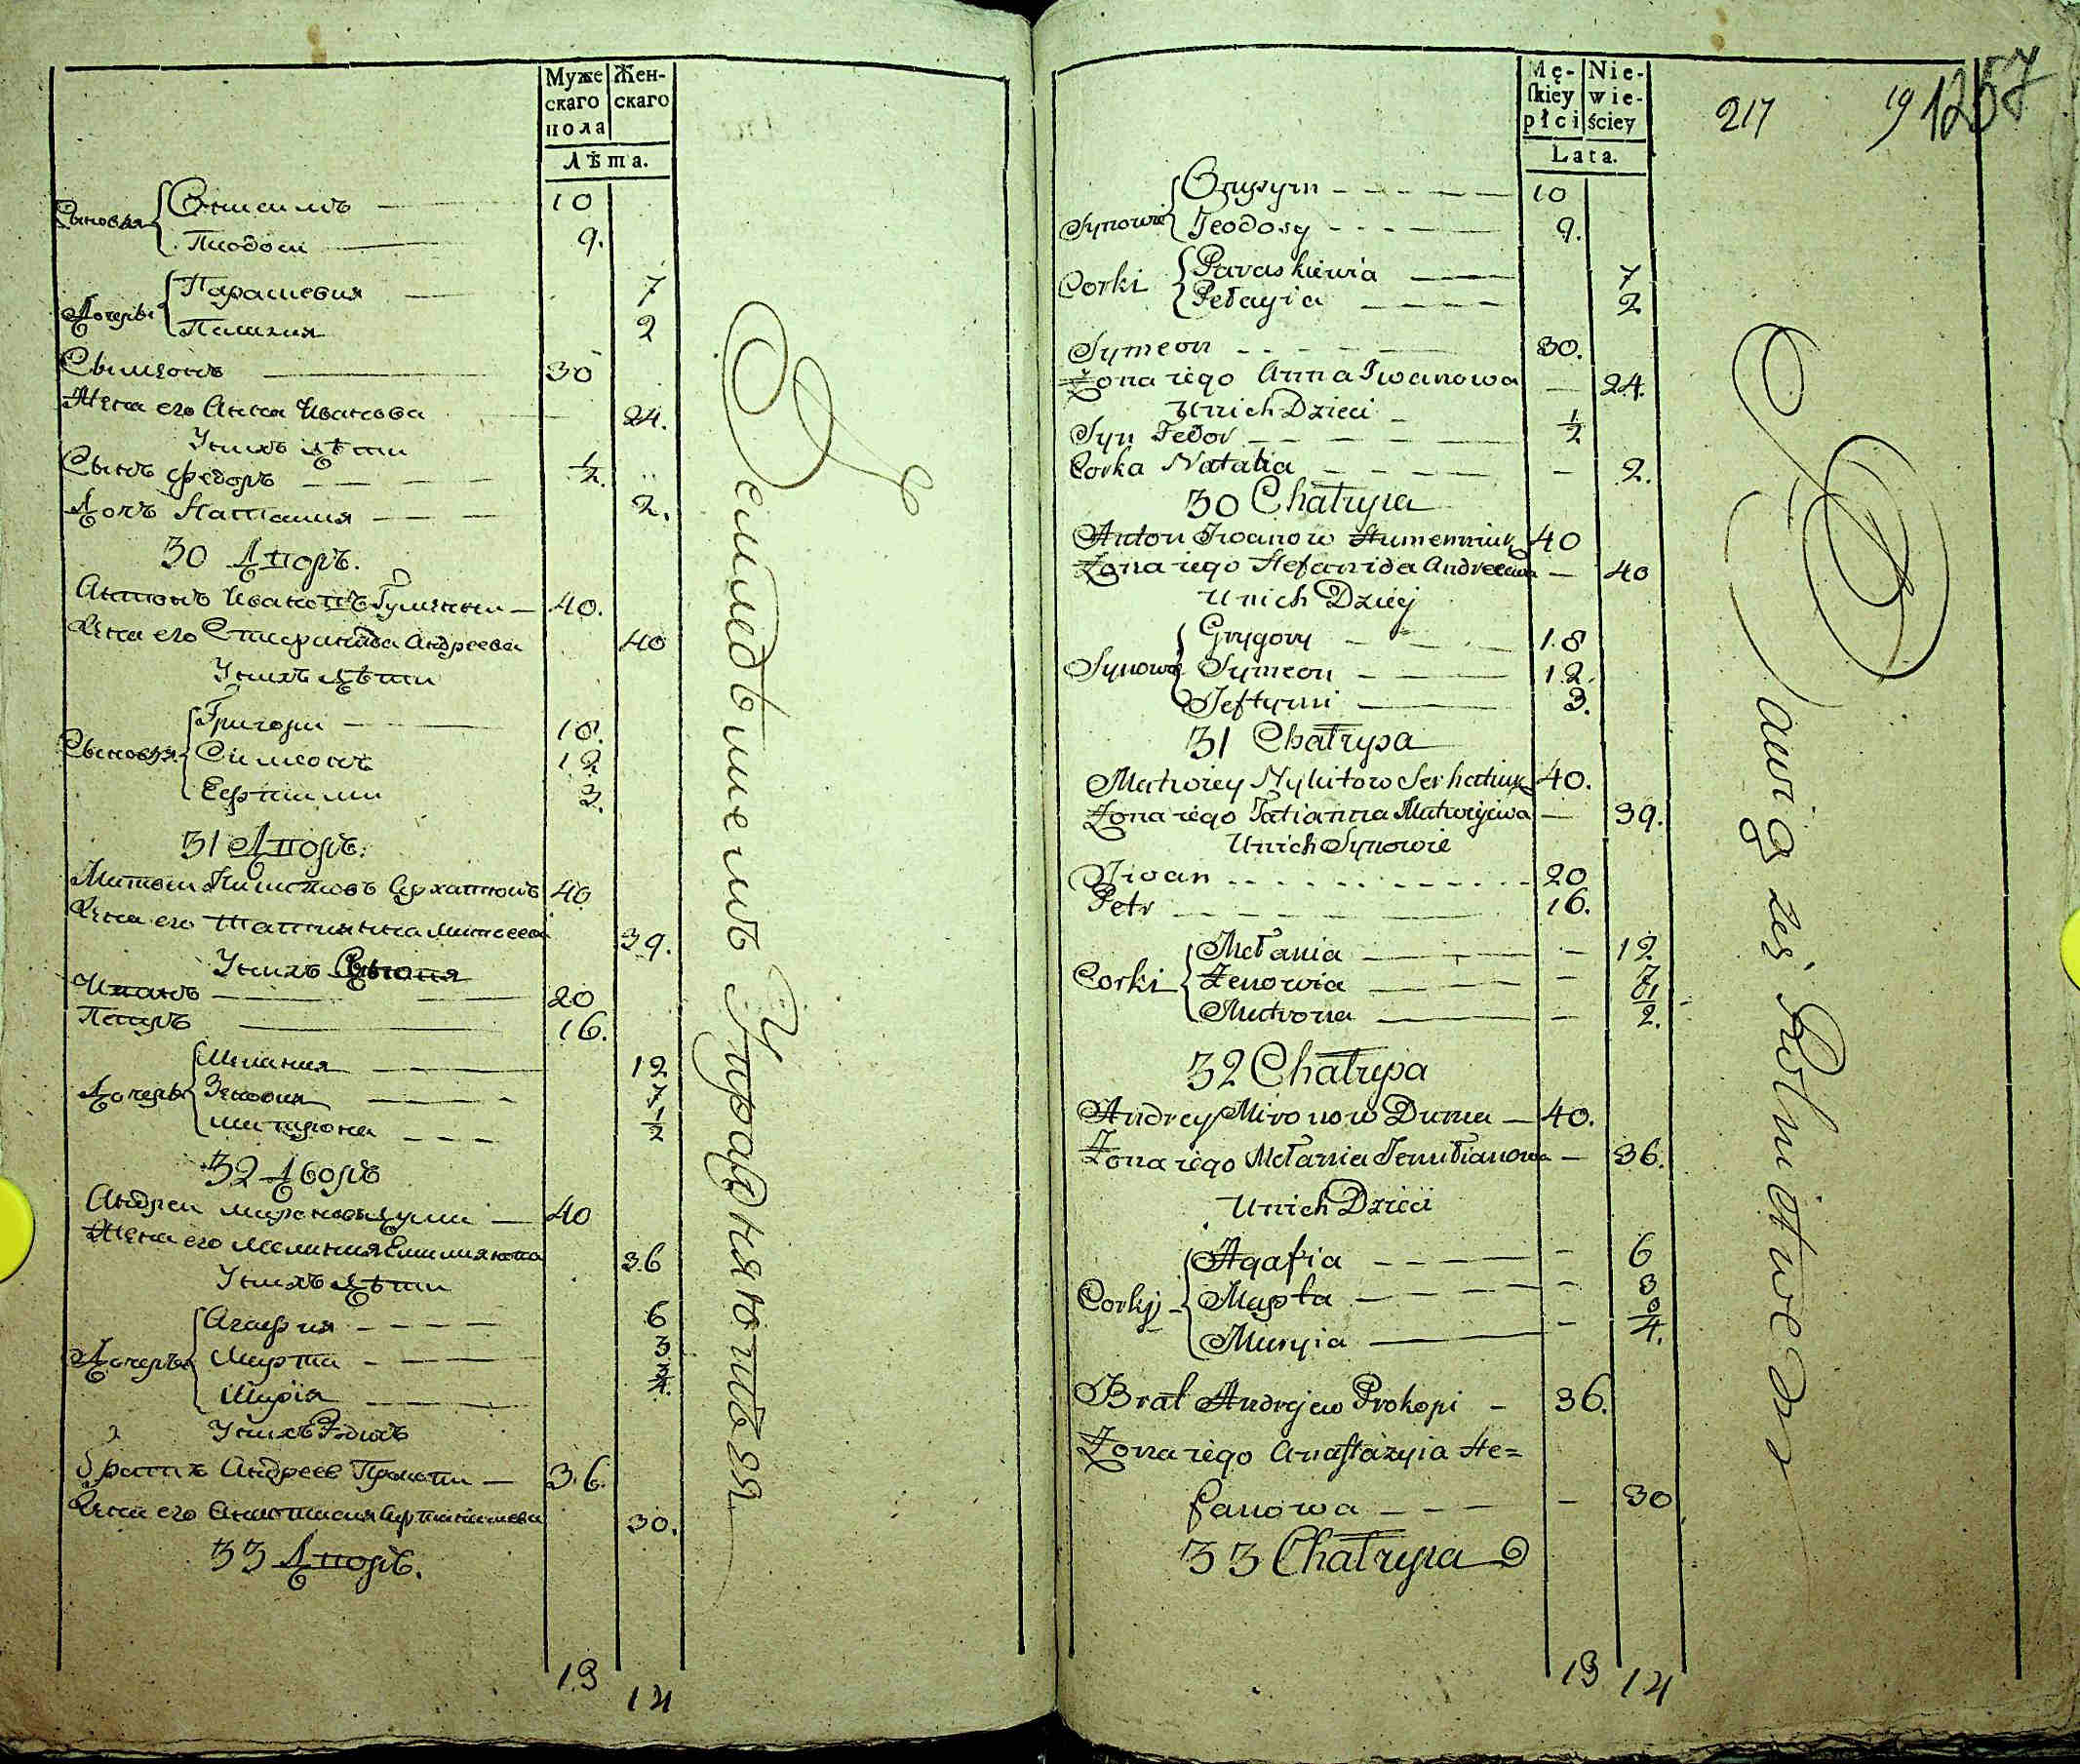 Муже
скаго
пола
Жен-
скаго
Лѣта.
Сыновья
Онисимъ 10
Теодоси 9.
Дочеры
Парасцевия 7
Пелагия 2
Сымеонъ 30
Жена его Анна Иванова 24.
У нихъ дѣти
Сынъ Федоръ 1/2.
Дочъ Наталия 2.
30 Дворъ.
Антонъ Ивановъ 40.
Жена его Стефанида Андреева 40
У нихъ дѣти
Сыновья
Григори 18.
Симеонъ 12
Ефтими 3.
31 Дворъ.
40
Жена его Татиянна 39.
У нихъ
Иванъ 20
Петръ 16.
Дочеры
Мелания 12
Зеновия 7
Матрона 1/2
32 Дворъ
Андреи Миронов Дума 40
Жена его Мелания Емилиянова 36
У нихъ дѣти
Дочеры
Агафия 6
Марта 3
Мария 3/4.
У нихъ
братъ Андреев Прокопи 36.
Жена его 30.
33 Дворъ.
13
14
Земледѣлиемъ Упражняютъся
Mę-
ſkiey
płci
Nie-
wie-
ściey
Lata.
217
19
1257
Synowie
Onysym 10
Teodosy 9.
Corki
Paraskiewia 7
Pełagia 2
Symeon 30.
Żona iego Anna Iwanowa 24.
U nich Dzieci
Syn Fedor 1/2
Corka Natalia 2.
30 Chałupa
Anton Iwanow Humenniuk 40
Żona iego Stefanida Andreewa 40
U nich Dzieci
Synowie
Grygory 18
Symeon 12.
Jeftymi 3.
31 Chałupa
Matwiey Nykitow Serhatiuk 40.
Żona iego Tatianna Matwiejewa 39.
U nich Synowie
Iwan 20
Petr 16.
Corki
Mełania 12
Zenowia 7
Matrona 1/2.
32 Chałupa
Andrey Mironow Duma 40.
Żona iego Mełania Jemilianowa 36.
U nich Dzieci
Corky
Agafia 6
Marta 3
Maryia 3/4.
Brat Andrejew Prokopi 36.
Żona iego Anastazyia Ste=
fanowa 30
33 Chałupa
13
14
Bawią się Rolnictwem